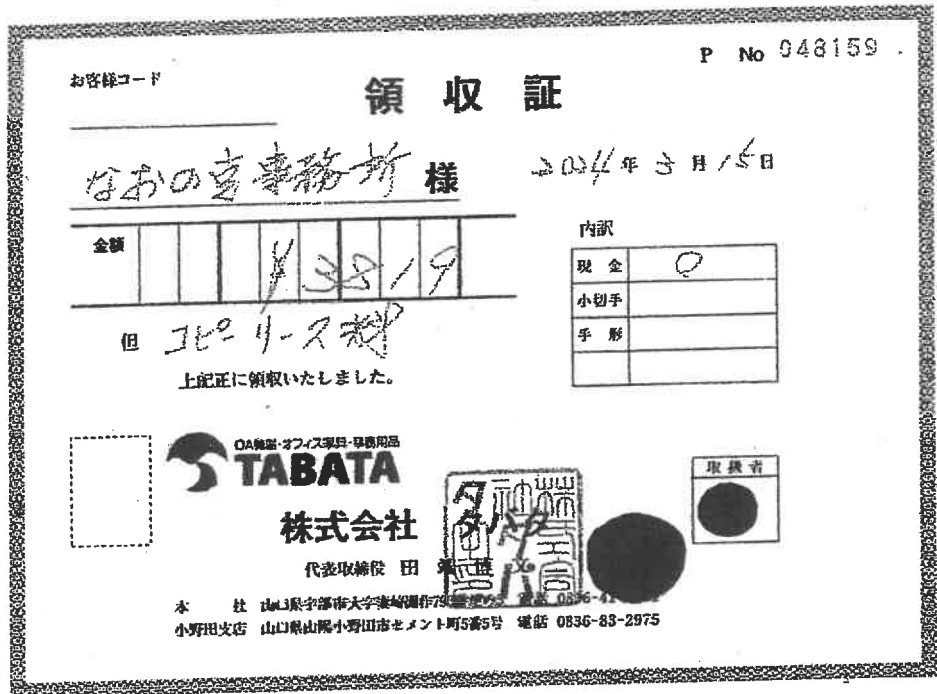 P No 048159
お客様コード
領収証
なおの宮事務所 様
2024年3月15日
金額 ¥3819
内訳
現金 〇
小切手
手形
但 コピーリース料
上記正に領収いたしました。
OA機器・オフィス家具・事務用品
TABATA
株式会社 タバタ
取扱者
代表取締役 田
本社 山口県宇部市大字 電話 0836-41-
小野田支店 山口県山陽小野田市セメント町5番5号 電話 0836-83-2975